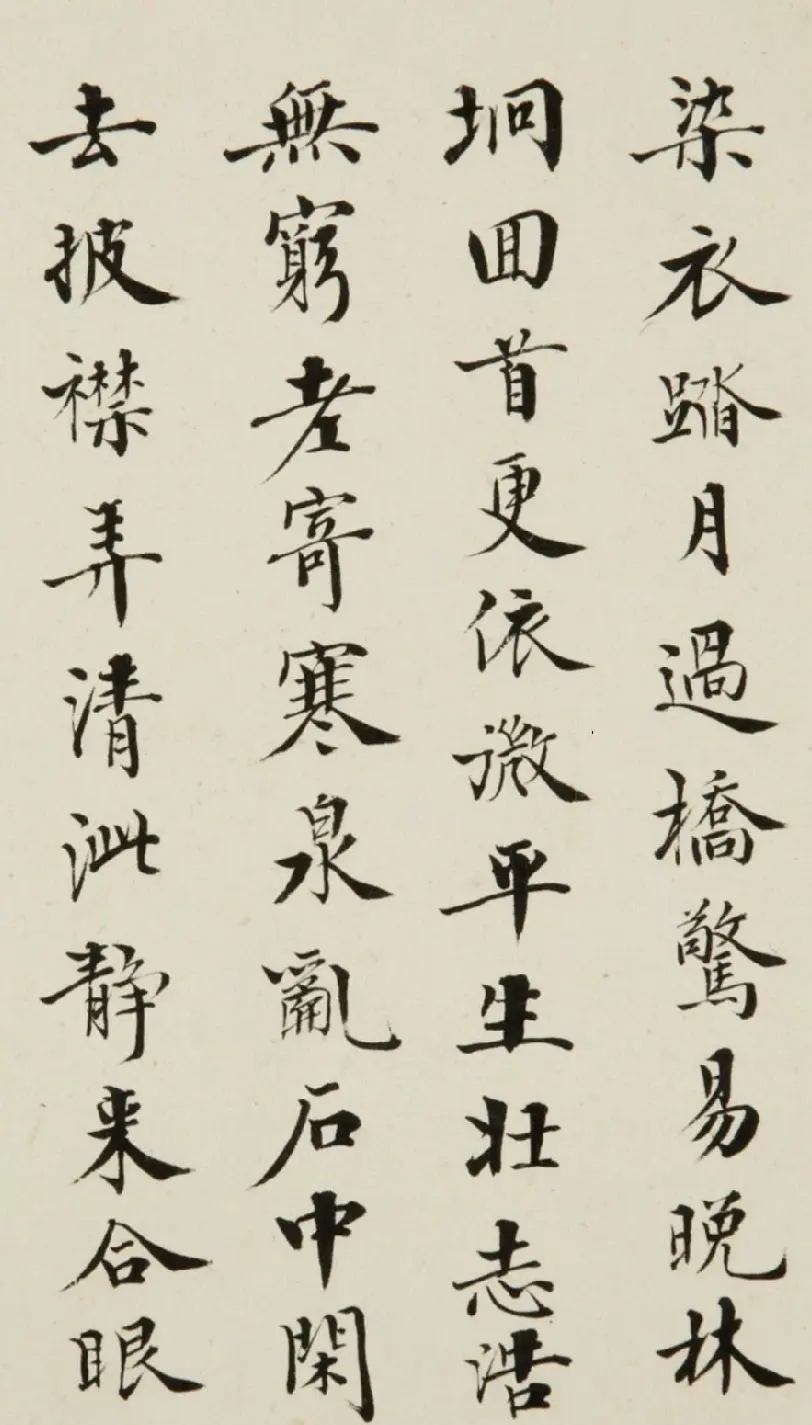 染衣踏月過橋驚易晚林
坰囬首更依微平生壯志浩
無窮老寄寒泉亂石中閑
去披襟弄清泚靜来合眼